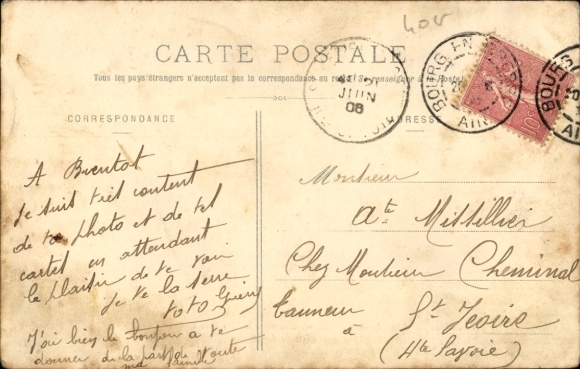 CARTE POSTALE
Tous les pays étrangers n'acceptent pas la correspondance au recto. (Se renseigner à la Poste)
CORRESPONDANCE
ADRESSE
JUIN
08
BOURG EN BRESSE
AIN
BOURG
A
10c
A Bientot
Je suis très content
de ta photo et de tes
cartes en attendant
le plaisir de te voir
Je te la serre
Toto
J'ai bien le bonjour a te
donner de la part de toute
ma
Monsieur
Ate Mistellier
Chez Monsieur Cheminal
Tanneur
à
St Jeoire
(Hte Savoie)